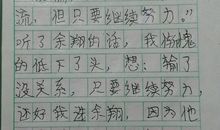 流，但只要继续努力。”
听了余翔的话，我惭愧
的低下了头，想：输了
没关系，只要继续努力，
还好我进余翔，因为他